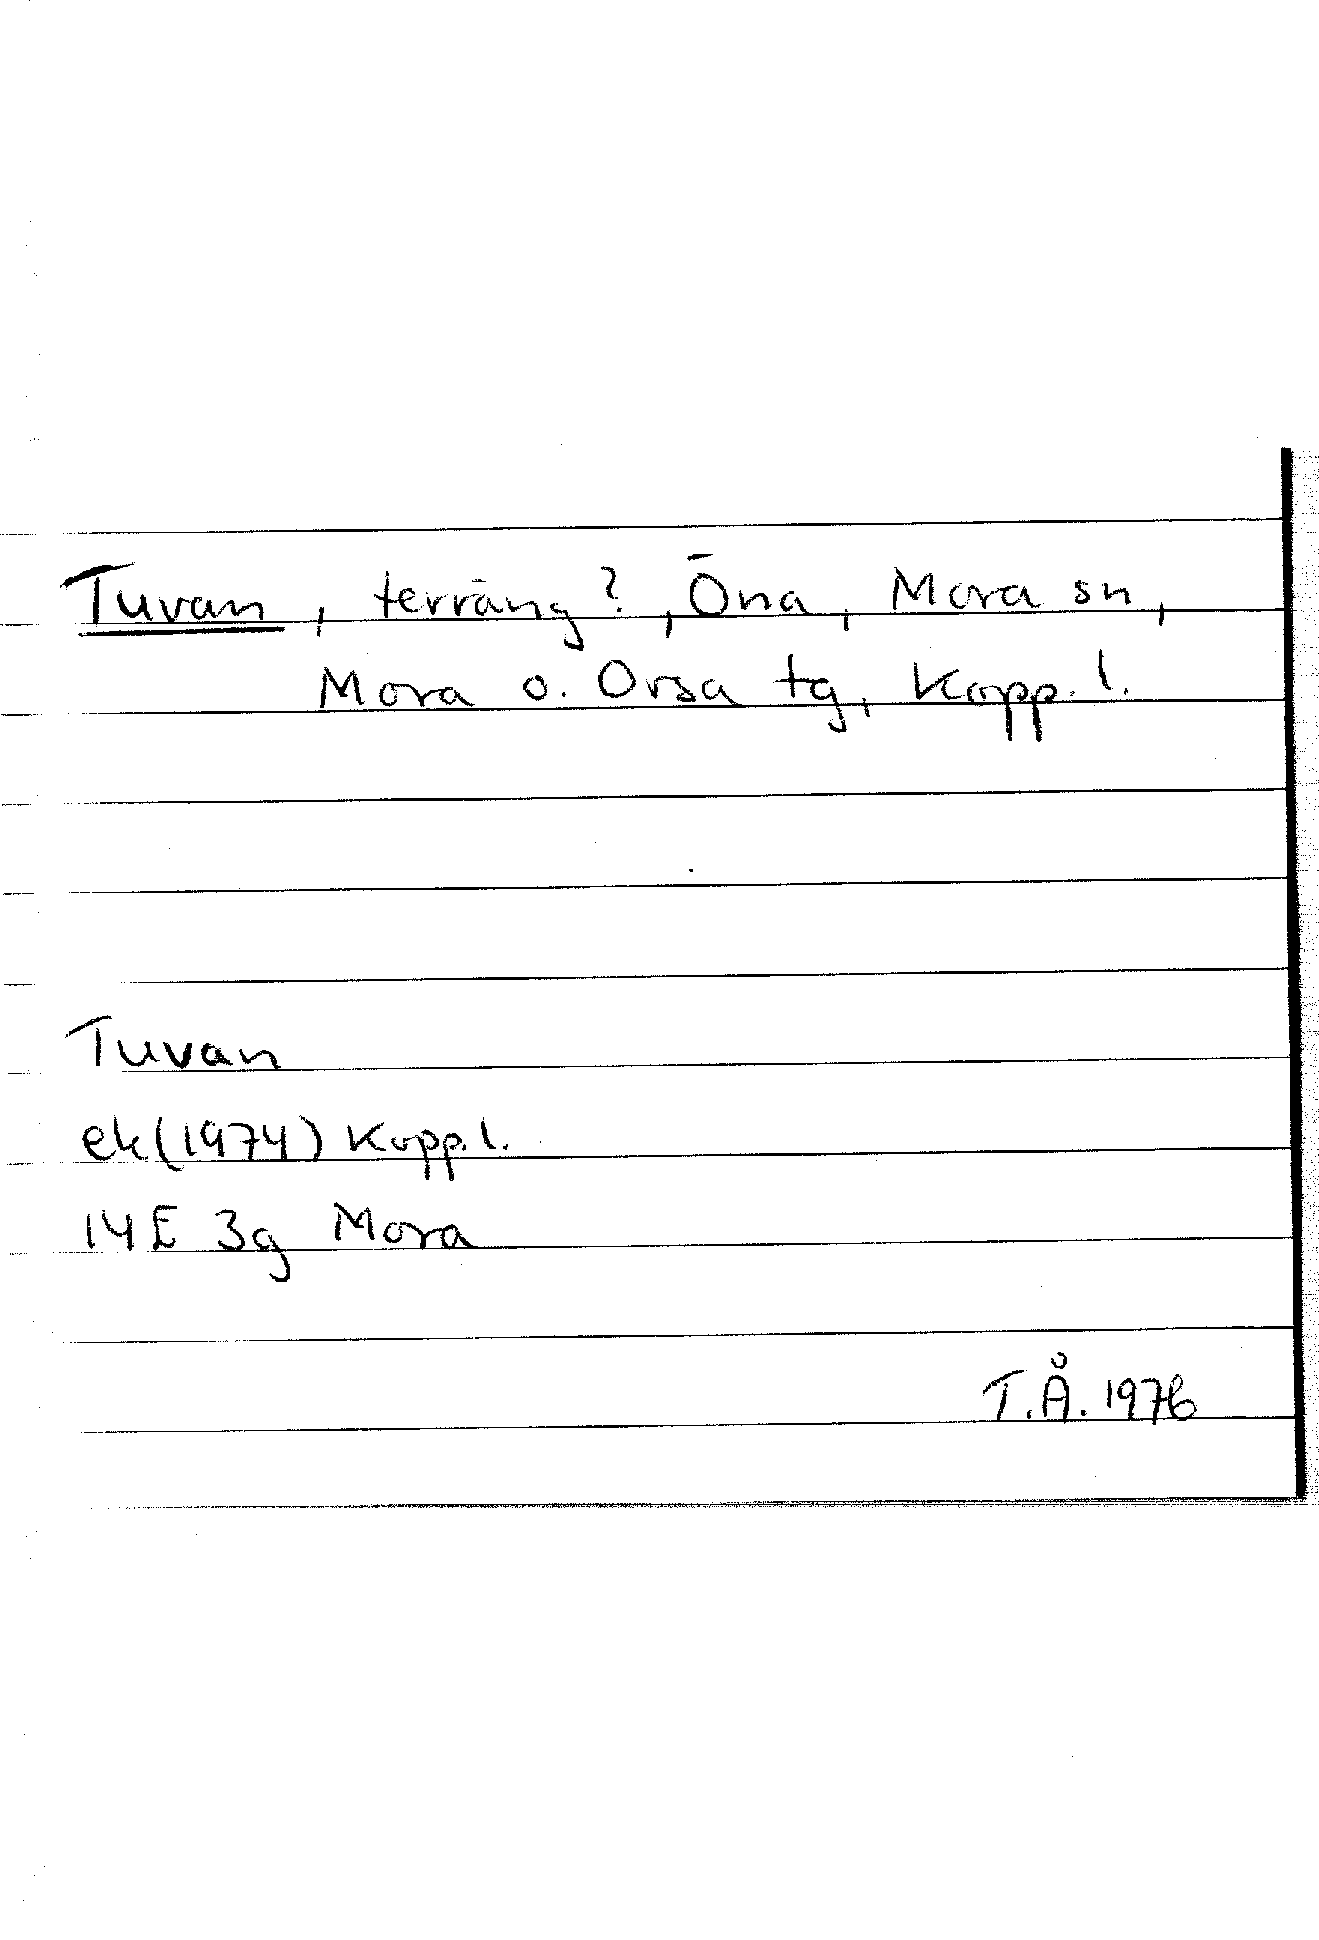 Tuvan, terräng?, Öna, Mora sn,
Mora o. Orsa tg, Kopp. l.
Tuvan
ek (1974) Kopp. l.
14E 3g Mora
T.Å. 1976